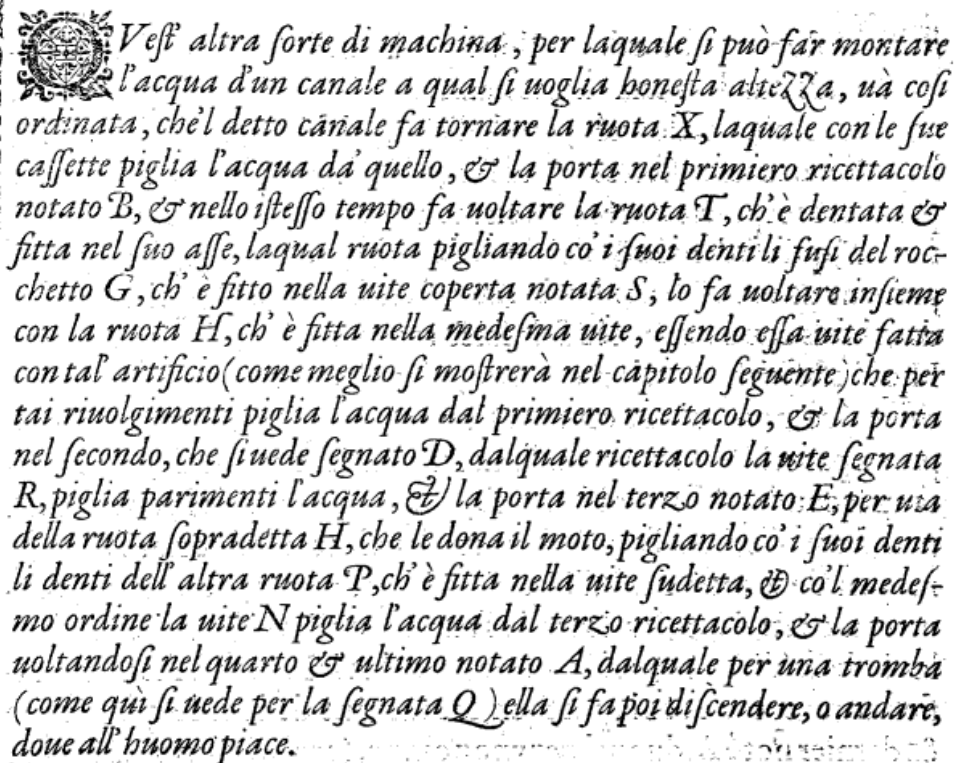 QVeſt' altra ſorte di machina, per laquale ſi può far montare
l'acqua d'un canale a qual ſi uoglia honeſta altezza, uà coſi
ordinata, che'l detto canale fa tornare la ruota X, laquale con le ſue
caſſette piglia l'acqua da' quello, & la porta nel primiero ricettacolo
notato B, & nello iſteſſo tempo fa uoltare la ruota T, ch'è dentata &
fitta nel ſuo aſſe, laqual ruota pigliando co' i ſuoi denti li fuſi del roc-
chetto G, ch' è fitto nella uite coperta notata S, lo fa uoltare inſieme
con la ruota H, ch' è fitta nella medeſma uite, eſſendo eſſa uite fatta
con tal' artificio (come meglio ſi moſtrerà nel capitolo ſeguente) che per
tai riuolgimenti piglia l'acqua dal primiero ricettacolo, & la porta
nel ſecondo, che ſi uede ſegnato D, dalquale ricettacolo la uite ſegnata
R, piglia parimenti l'acqua, & la porta nel terzo notato E, per uia
della ruota ſopradetta H, che le dona il moto, pigliando co' i ſuoi denti
li denti dell' altra ruota P, ch' è fitta nella uite ſudetta, & co'l medeſ-
mo ordine la uite N piglia l'acqua dal terzo ricettacolo, & la porta
uoltandoſi nel quarto & ultimo notato A, dalquale per una tromba
(come quì ſi uede per la ſegnata Q) ella ſi fa poi diſcendere, o andare,
doue all' huomo piace.